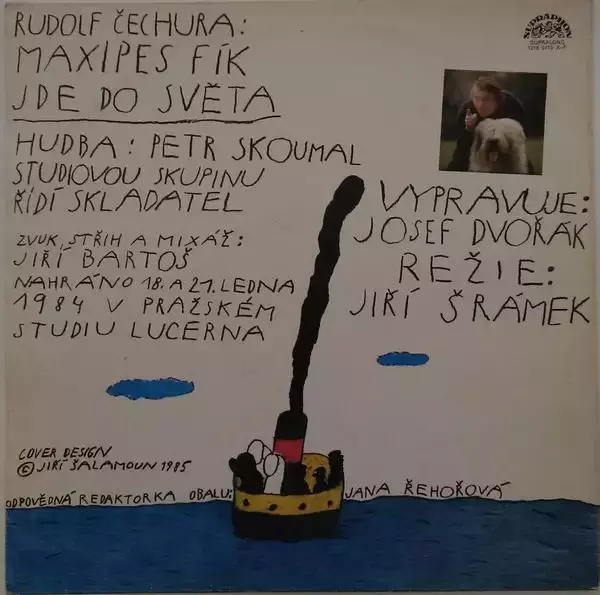 RUDOLF ČECHURA:
MAXIPES FÍK
JDE DO SVĚTA
HUDBA: PETR SKOUMAL
STUDIOVOU SKUPINU
ŘÍDÍ SKLADATEL
ZVUK, STŘIH A MIXÁŽ:
JIŘÍ BARTOŠ
NAHRÁNO 18. A 21. LEDNA
1984 V PRAŽSKÉM
STUDIU LUCERNA
SUPRAPHON
VYPRAVUJE:
JOSEF DVOŘÁK
REŽIE:
JIŘÍ ŠRÁMEK
COVER DESIGN
© JIŘÍ ŠALAMOUN 1985
ODPOVĚDNÁ REDAKTORKA OBALU: JANA ŘEHOŘOVÁ